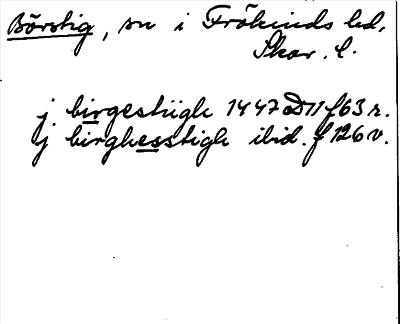 Börstig, sn i Frökinds hd,
Skar. l.
j birgestiigh 1447 D11 f63 r.
j birghesstigh ibid. f 126 v.